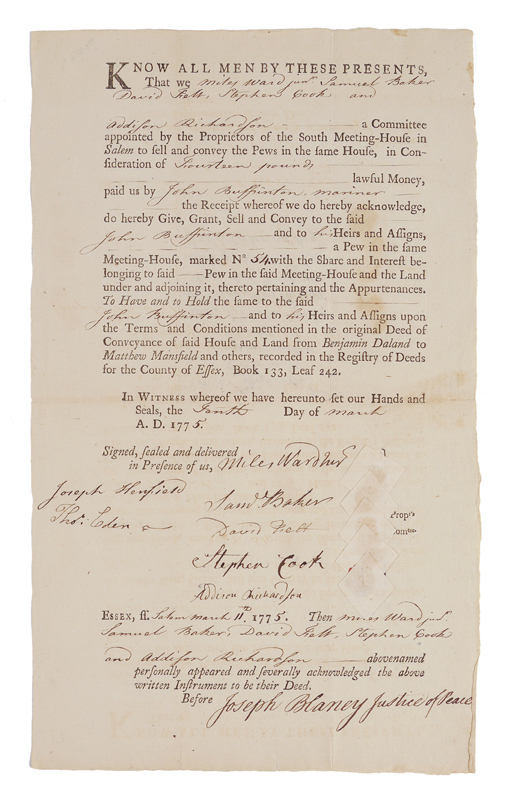 KNOW ALL MEN BY THESE PRESENTS,
That we Miles Ward junr Samuel Baker
David Felt, Stephen Cook and
Addison Richardson a Committee
appointed by the Proprietors of the South Meeting-House in
Salem to sell and convey the Pews in the same House, in Con-
sideration of Fourteen pounds
lawful Money,
paid us by John Buffinton mariner
the Receipt whereof we do hereby acknowledge,
do hereby Give, Grant, Sell and Convey to the said
John Buffinton and to his Heirs and Assigns,
a Pew in the same
Meeting-House, marked No 54. with the Share and Interest be-
longing to said Pew in the said Meeting-House and the Land
under and adjoining it, thereto pertaining and the Appurtenances.
To Have and to Hold the same to the said
John Buffinton and to his Heirs and Assigns upon
the Terms and Conditions mentioned in the original Deed of
Conveyance of said House and Land from Benjamin Daland to
Matthew Mansfield and others, recorded in the Registry of Deeds
for the County of Essex, Book 133, Leaf 242.
In WITNESS whereof we have hereunto set our Hands and
Seals, the Tenth Day of March
A. D. 1775.
Signed, sealed and delivered
in Presence of us, Miles Ward Junr
Joseph Henfield
Thos. Eden
Saml. Baker
David Felt
Stephen Cook
Addison Richardson
ESSEX, ss. Salem March 11th. 1775. Then Miles Ward junr.
Samuel Baker, David Felt, Stephen Cook
and Addison Richardson abovenamed
personally appeared and severally acknowledged the above
written Instrument to be their Deed.
Before Joseph Blaney Justice of Peace